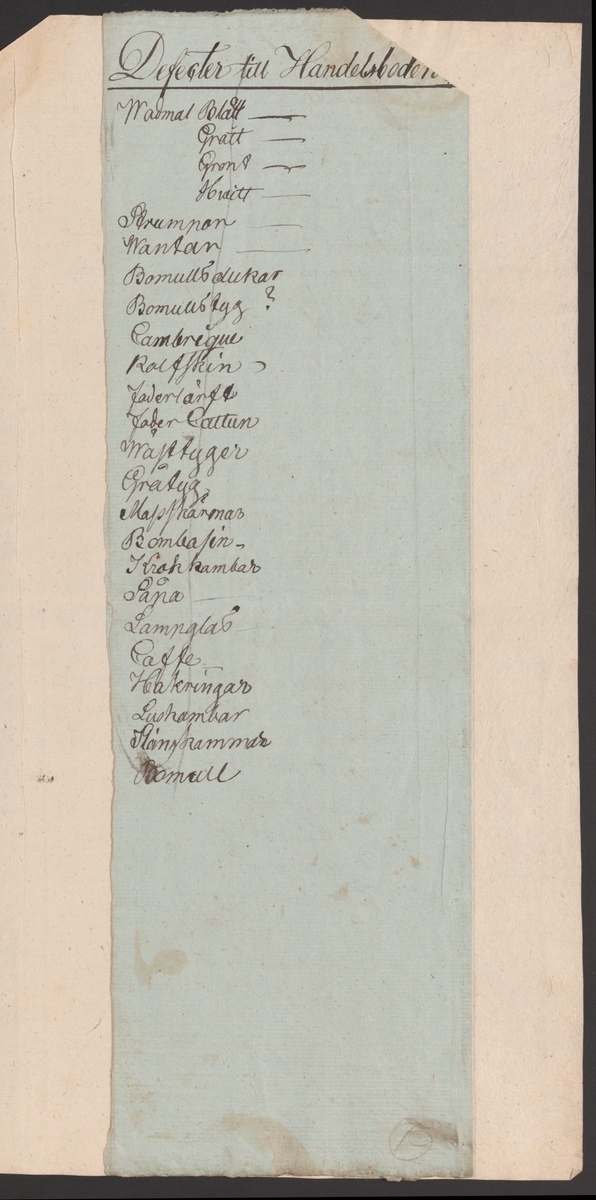 Defecter till Handelsboden
Wadmal Blått —
Grått —
Grönt —
Hwitt —
Strumpor —
Wantar —
Bomullsdukar
Bomullstyg ?
Cambrique
Kalfskin
foderlärft
foder Cattun
Wästtyger
Gråtyg
Bombasin
Krokkambar
Såpa —
Lampglas
Caffe
Hakringar
Luskambar
Stångkammar
Bomull